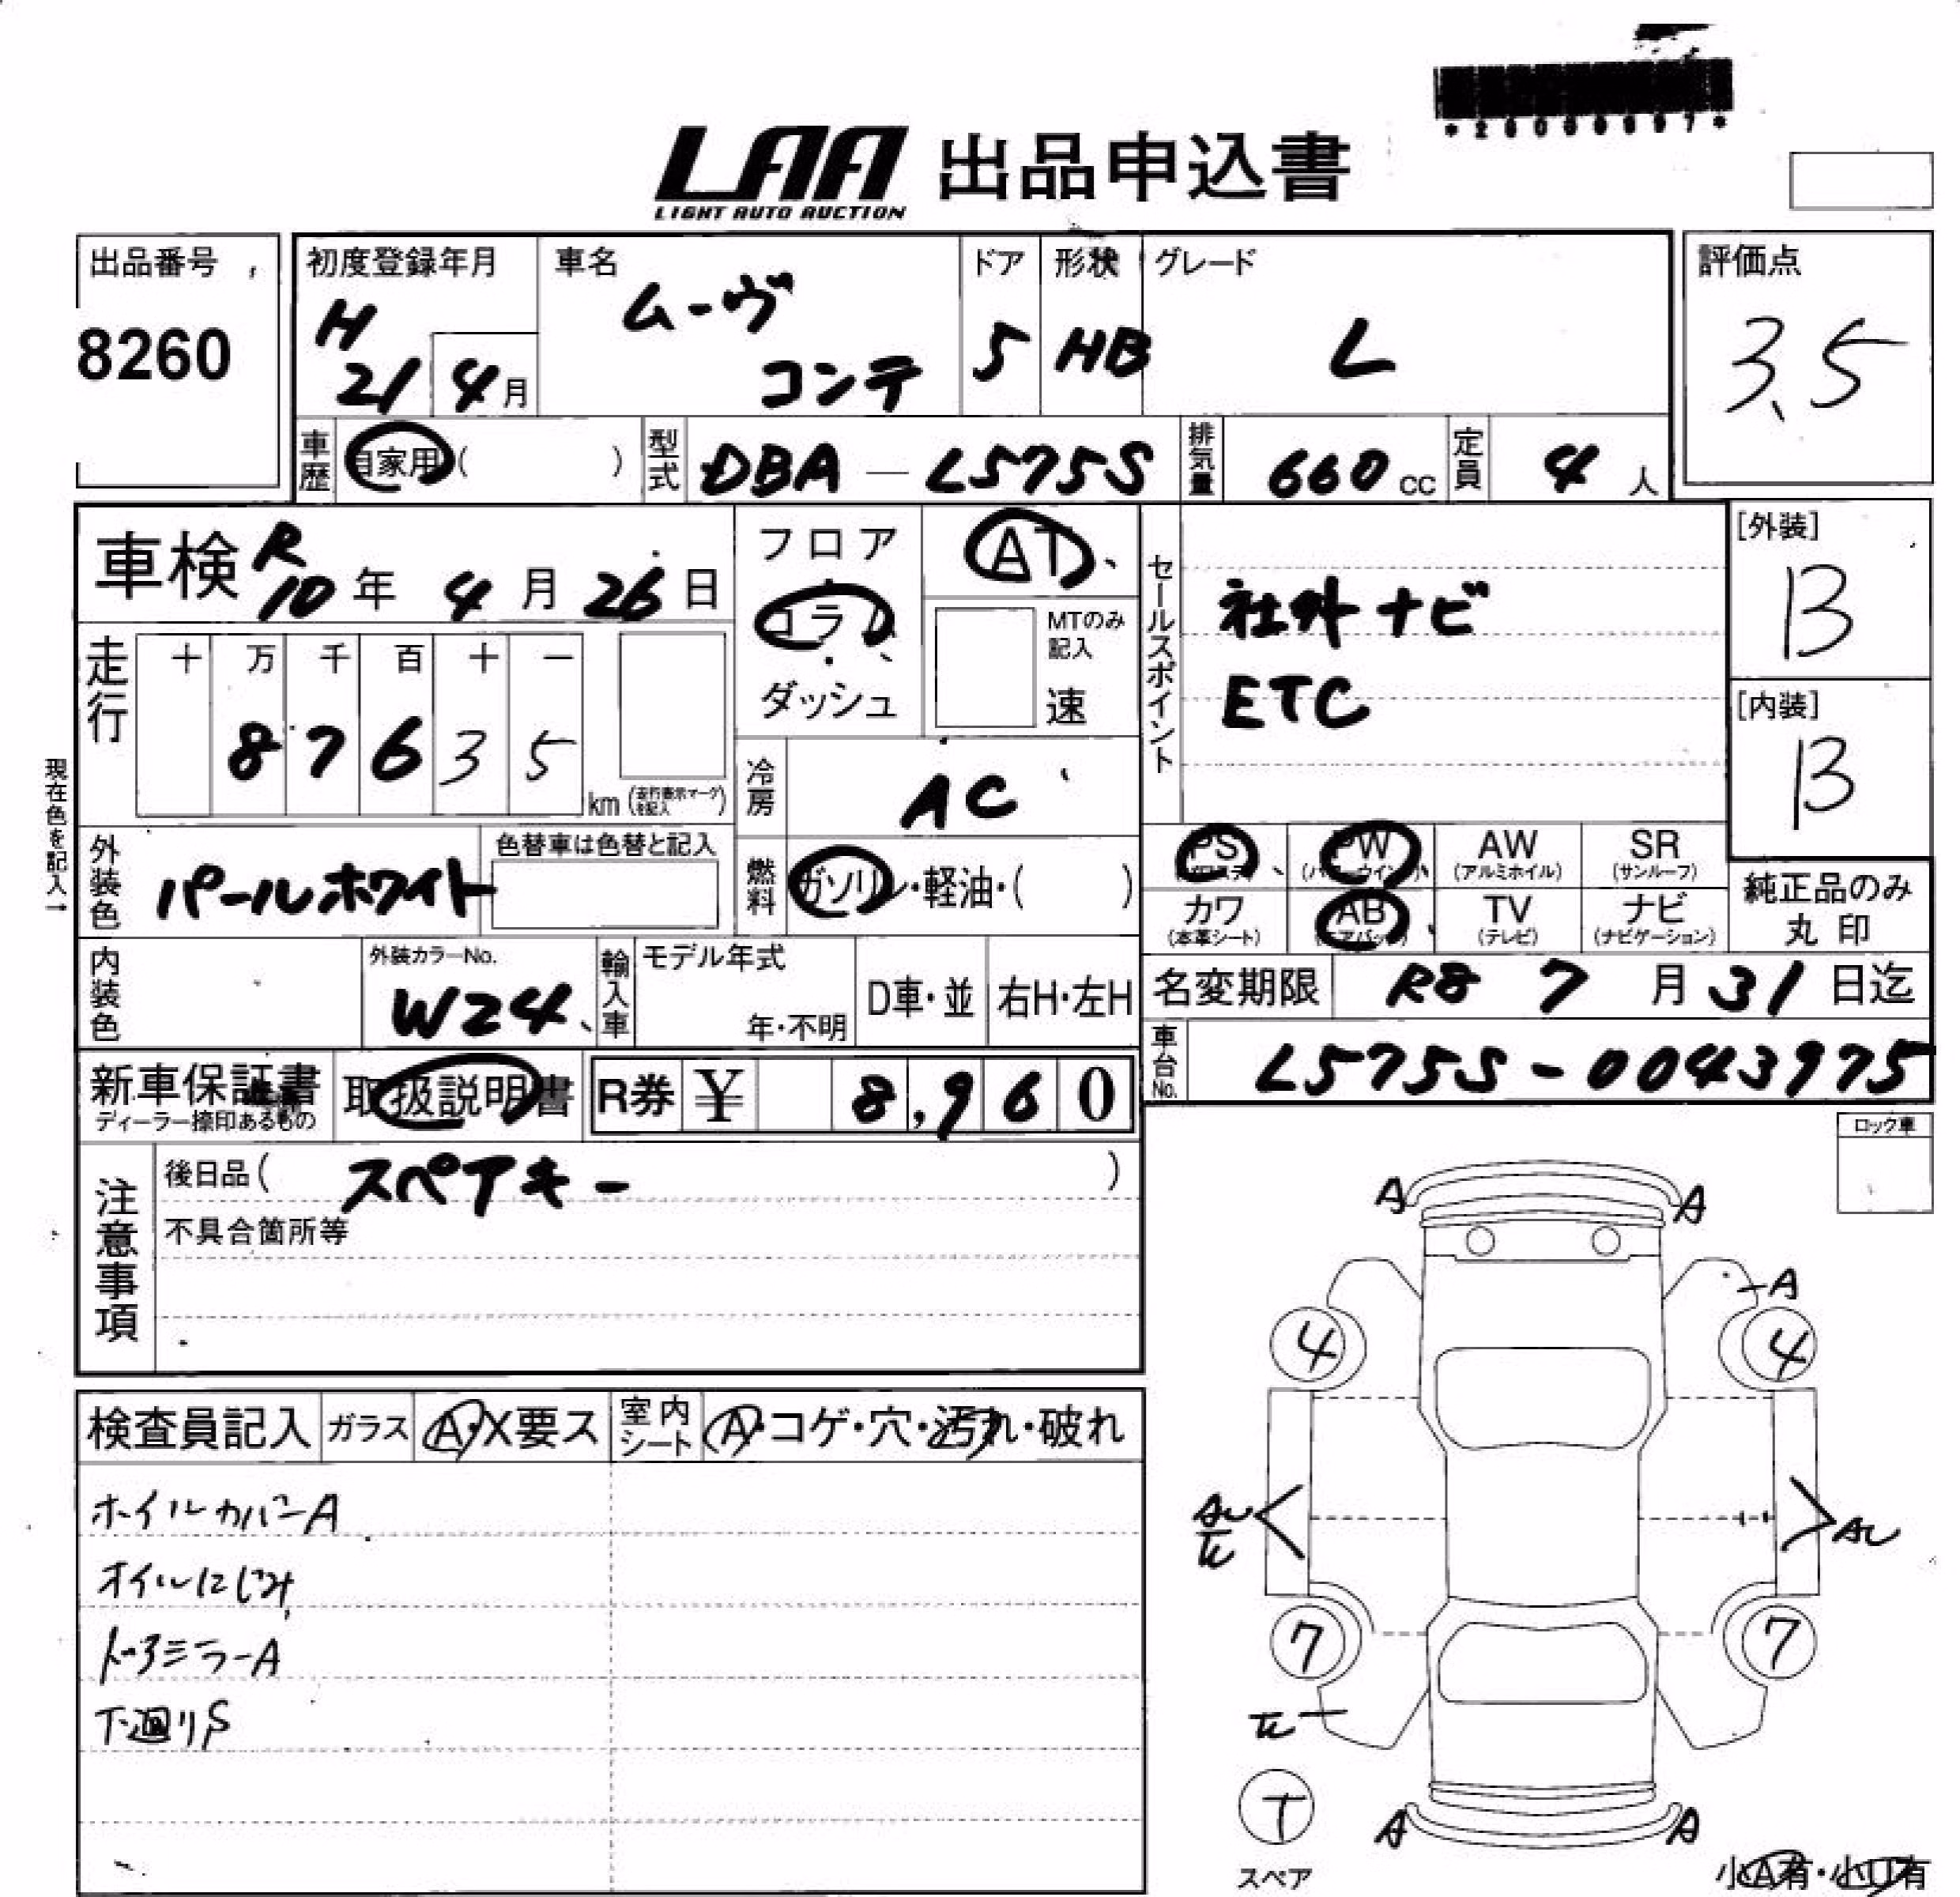 LAA 出品申込書
LIGHT AUTO AUCTION
出品番号
8260
初度登録年月
H
21 4月
車名
ムーヴ
コンテ
ドア
5
形状
HB
グレード
L
評価点
3.5
車歴 自家用 ( )
型式 DBA - L575S
排気量 660 cc
定員 4 人
車検 R 10 年 4 月 26 日
フロア
・
コラム
・
ダッシュ
AT
MTのみ記入
速
セールスポイント
社外ナビ
ETC
[外装]
B
[内装]
B
走行
十 万 千 百 十 一
8 7 6 3 5
km (走行表示マークを記入)
現在色を記入→
冷房 AC
外装色 パールホワイト
色替車は色替と記入
燃料 ガソリン・軽油・( )
PS PW
AW (アルミホイル)
SR (サンルーフ)
カワ (本革シート)
AB (エアバッグ)
TV (テレビ)
ナビ (ナビゲーション)
純正品のみ
丸印
内装色
外装カラーNo.
W24
輸入車
モデル年式
年・不明
D車・並
右H・左H
名変期限 R8 7 月 31 日迄
車台No. L575S-0043975
新車保証書
ディーラー捺印あるもの
取扱説明書
R券 ¥ 8,960
ロック車
注意事項
後日品( スペアキー )
不具合箇所等
検査員記入
ガラス A・X要ス
室内シート A・コゲ・穴・汚れ・破れ
ホイルカバーA
オイルにじみ
ドアミラーA
下廻りS
A A
A
4 4
AU AU
7 7
T
スペア
A A
小A有・小U有